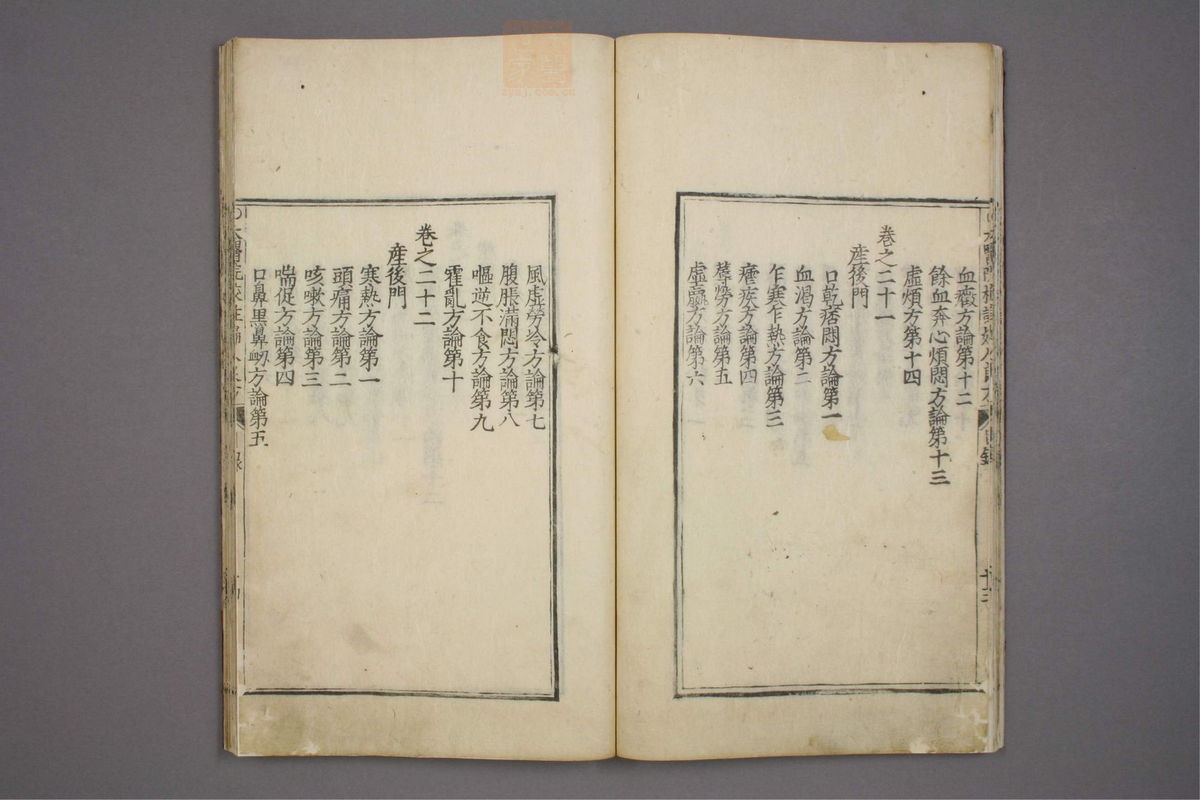 血癥方論第十二
餘血奔心煩悶方論第十三
虛煩方第十四
卷之二十一
産後門
口乾痞悶方論第一
血渴方論第二
乍寒乍熱方論第三
瘧疾方論第四
蓐勞方論第五
虛羸方論第六
風虛勞冷方論第七
腹脹滿悶方論第八
嘔逆不食方論第九
霍亂方論第十
卷之二十二
産後門
寒熱方論第一
頭痛方論第二
咳嗽方論第三
喘促方論第四
口鼻黒鼻衂方論第五